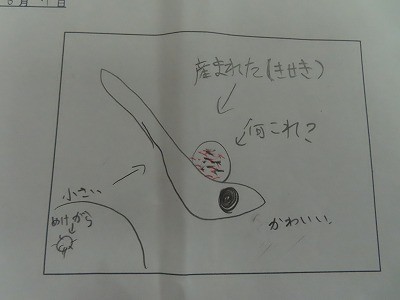 月 日
産まれた(きせき)
何これ?
小さい
ぬけがら
かわいい.